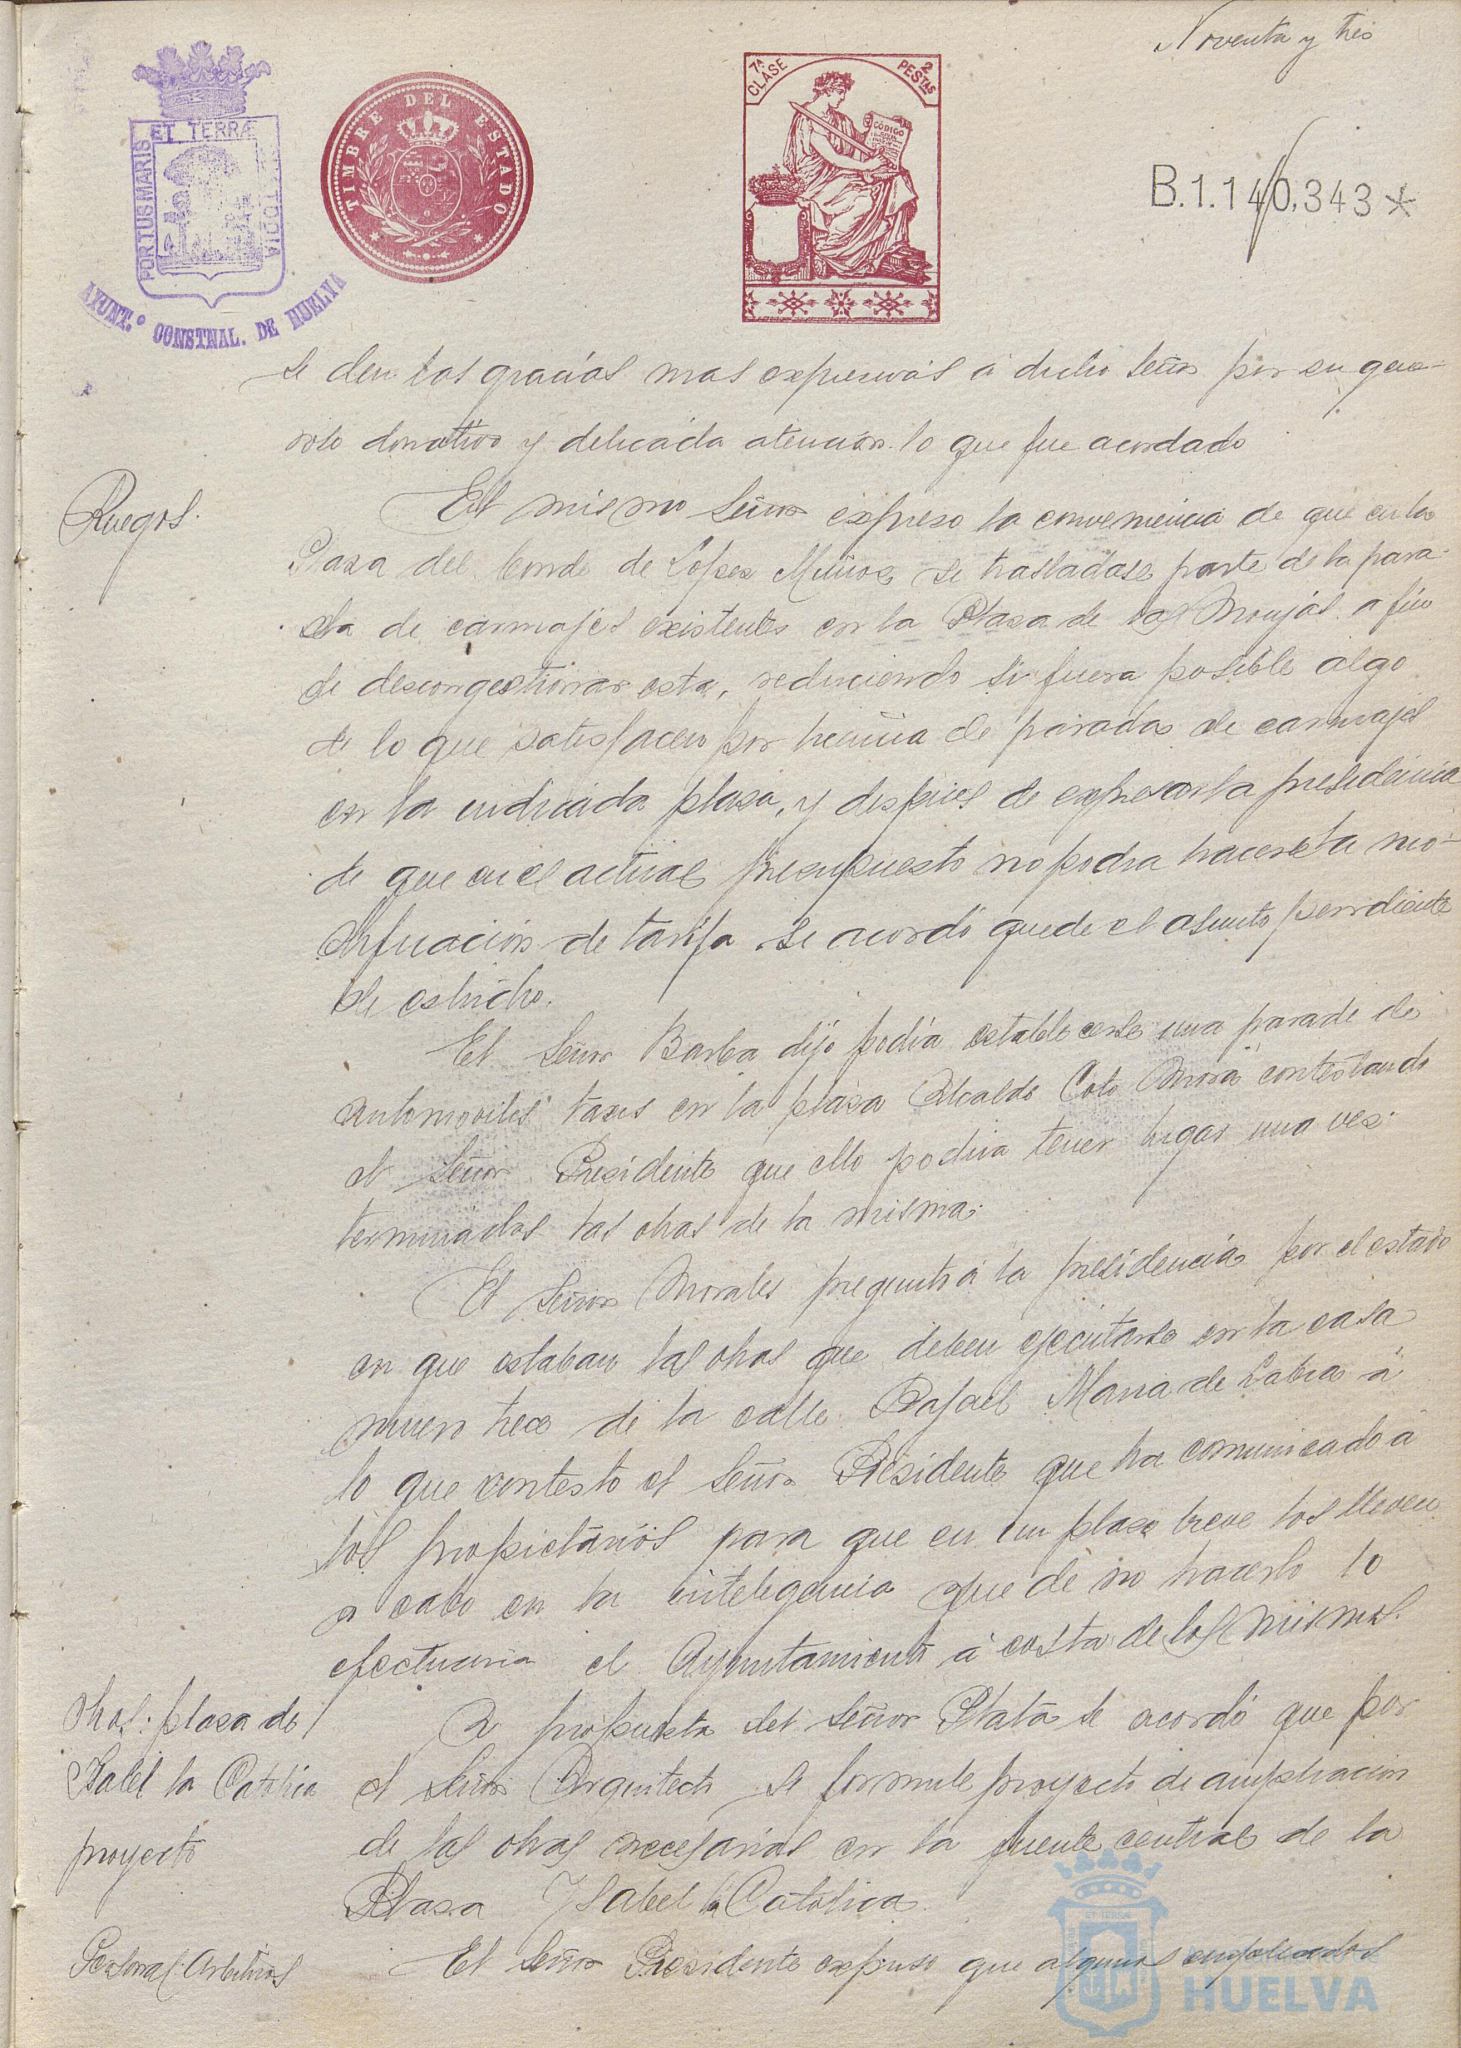 Noventa y tres
PORTUS MARIS
ET TERRÆ
CUSTODIA
AYUNT.º CONSTNAL. DE HUELVA
TIMBRE DEL ESTADO
7ª CLASE
2 PESTAS
CÓDIGO
B.1.140,343*
se den las gracias mas expresivas á dicho Señor por su gene-
roso donativo y delicada atención lo que fue acordado
Ruegos.
El mismo Señor expreso la conveniencia de que en la
Plaza del Conde de Lopez Muñoz, se trasladase parte de la para-
da de carruajes existentes en la Plaza de las Monjas, a fin
de descongestionar esta, reduciendo si fuera posible algo
de lo que satisfacen por licencia de paradas de carruajes
en la indicada plaza, y despues de expresar la presidencia
de que en el actual presupuesto no podia hacerse la mo-
dificación de tarifa se acordó quede el asunto pendiente
de estudio.
El Señor Barba dijo podia establecerse una parada de
automoviles taxis en la plaza Alcalde Coto Mora contestando
el Señor Presidente que ello podria tener lugar una vez
terminadas las obras de la misma.
El Señor Morales preguntó á la presidencia por el estado
en que estaban las obras que deben ejecutarse en la casa
numero trece de la calle Rafael Maria de Labra á
lo que contesto el Señor Presidente que ha comunicado á
los propietarios para que en un plazo breve las lleven
a cabo en la inteligencia que de no hacerlo lo
efectuaria el Ayuntamiento á costa de los mismos.
Obras: plaza de
Isabel la Catolica
proyecto
A propuesta del Señor Plata se acordó que por
el Señor Arquitecto se formule proyecto de ampliacion
de las obras necesarias en la fuente central de la
Plaza Ysabel la Catolica.
Personal: Arbitrios
El Señor Presidente expreso que algunos empleados
Ayuntamiento de
HUELVA